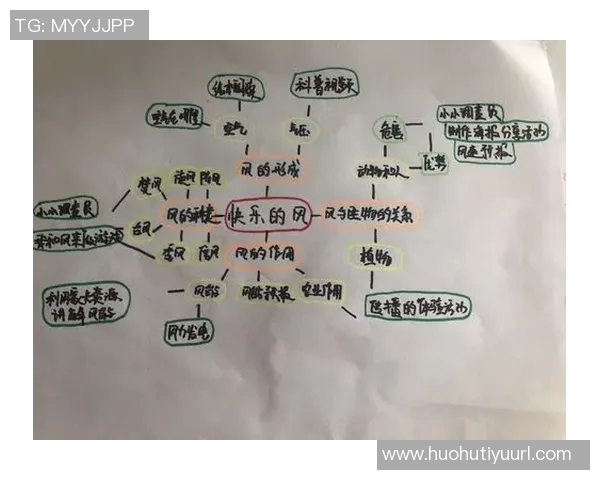 TG: MYYJJPP
绘本阅读
科普视频
空气在哪里
空气
气压
小小调查员
制作海报分享活动
危害
风的形成
风速行报
龙卷风
焚风
动物和人
小小调查员
风的种类
快乐的风
风与生物的关系
台风
我和风来做游戏
季风
风的作用
植物
利用家长资源
讲解风能
风能
风力发电
农业作用
传播的体验活动
www.huohutiyuurl.com